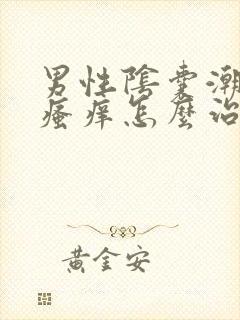 男性陰囊潮
瘙痒怎麼治
黃金安